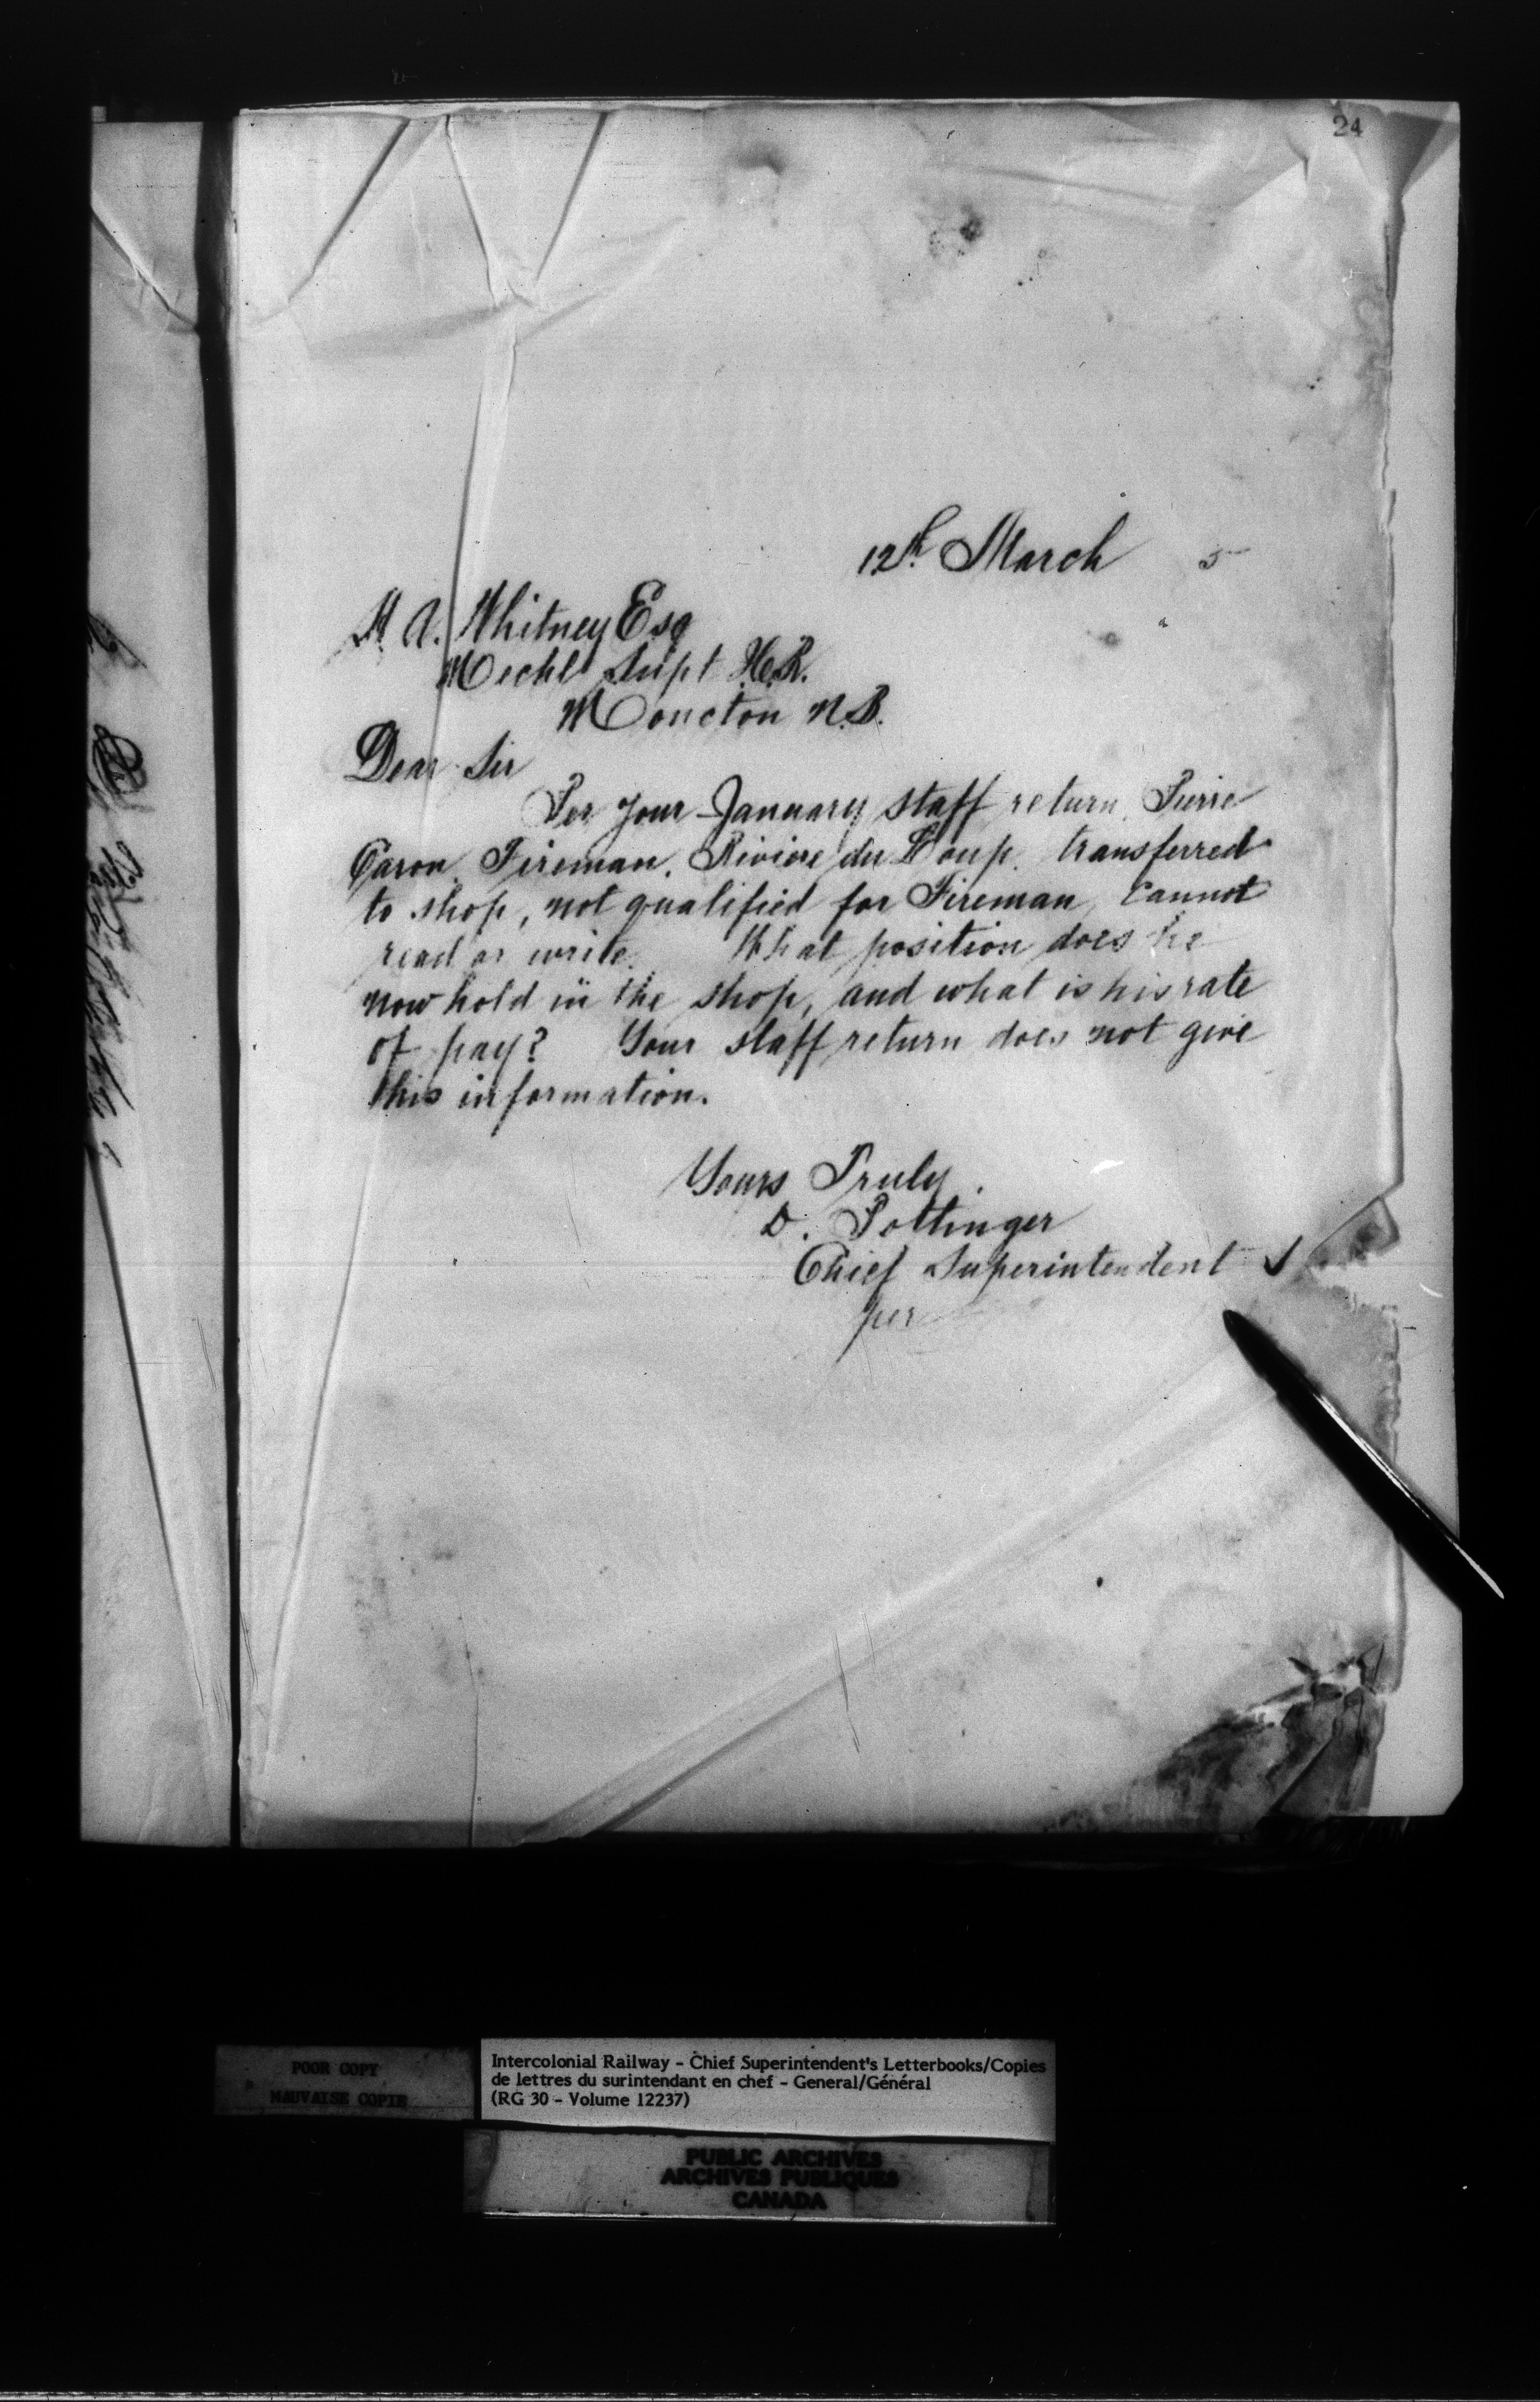 24
12th March 5
H. A. Whitney Esq
Mechl Supt I.C.R.
Moncton N.B.
Dear Sir
Per your January staff return, Pierre
Caron, Fireman, Riviere du Loup, transferred
to shop, not qualified for Fireman, cannot
read or write. What position does he
now hold in the shop, and what is his rate
of pay? Your staff return does not give
this information.
Yours Truly.
D. Pottinger
Chief Superintendent
per
POOR COPY
MAUVAISE COPIE
Intercolonial Railway - Chief Superintendent's Letterbooks/Copies
de lettres du surintendant en chef - General/Général
(RG 30 - Volume 12237)
PUBLIC ARCHIVES
ARCHIVES PUBLIQUES
CANADA